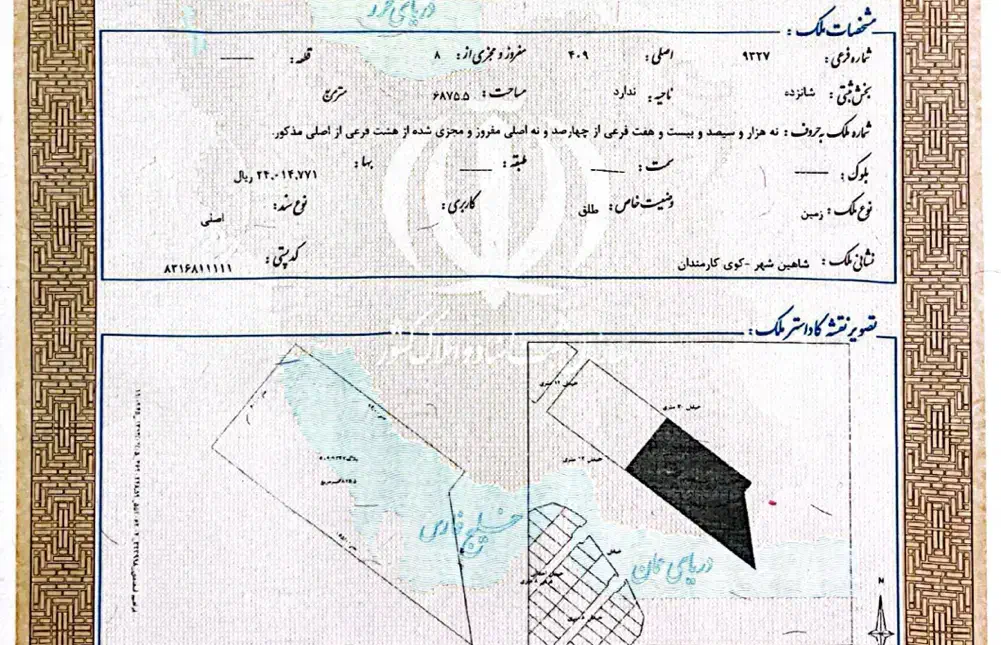 دریای خزر
مشخصات ملک :
شماره فرعی : ۹۳۲۷ اصلی : ۴۰۹ مفروز و مجزی از : ۸ قطعه : ——
بخش ثبتی : شانزده ناحیه : ندارد مساحت : ۶۸۷۵.۵ مترمربع
شماره ملک به حروف : نه هزار و سیصد و بیست و هفت فرعی از چهارصد و نه اصلی مفروز و مجزی شده از هشت فرعی از اصلی مذکور.
بلوک : —— سمت : —— طبقه : —— بها : ۲۴,۰۱۴,۷۷۱ ریال
نوع ملک : زمین وضعیت خاص : طلق کاربری : نوع سند : اصلی
نشانی ملک : شاهین شهر -کوی کارمندان کدپستی : ۸۳۱۶۸۱۱۱۱۱
تصویر نقشه کاداستر ملک :
خیابان ۱۲ متری
خیابان ۳۰ متری
خیابان ۱۲ متری
خلیج فارس
دریای عمان
خیابان
N